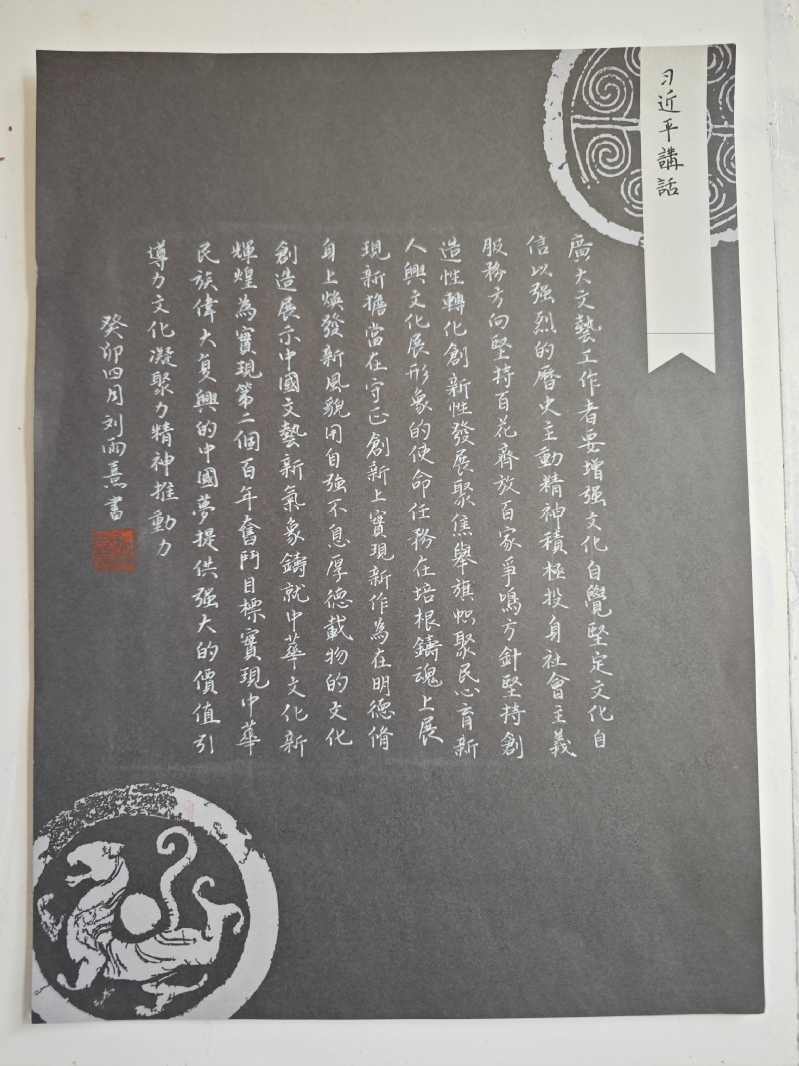 习近平講話
廣大文藝工作者要增强文化自覺堅定文化自
信以强烈的曆史主動精神積極投身社會主義
服務方向堅持百花齊放百家爭鳴方針堅持創
造性轉化創新性發展聚焦舉旗幟聚民心育新
人興文化展形象的使命任務在培根鑄魂上展
現新擔當在守正創新上實現新作為在明德脩
身上煥發新風貌用自强不息厚德載物的文化
創造展示中國文藝新氣象鑄就中華文化新
輝煌為實現第二個百年奮鬥目標實現中華
民族偉大复興的中國夢提供强大的價值引
導力文化凝聚力精神推動力
癸卯四月刘雨熹書